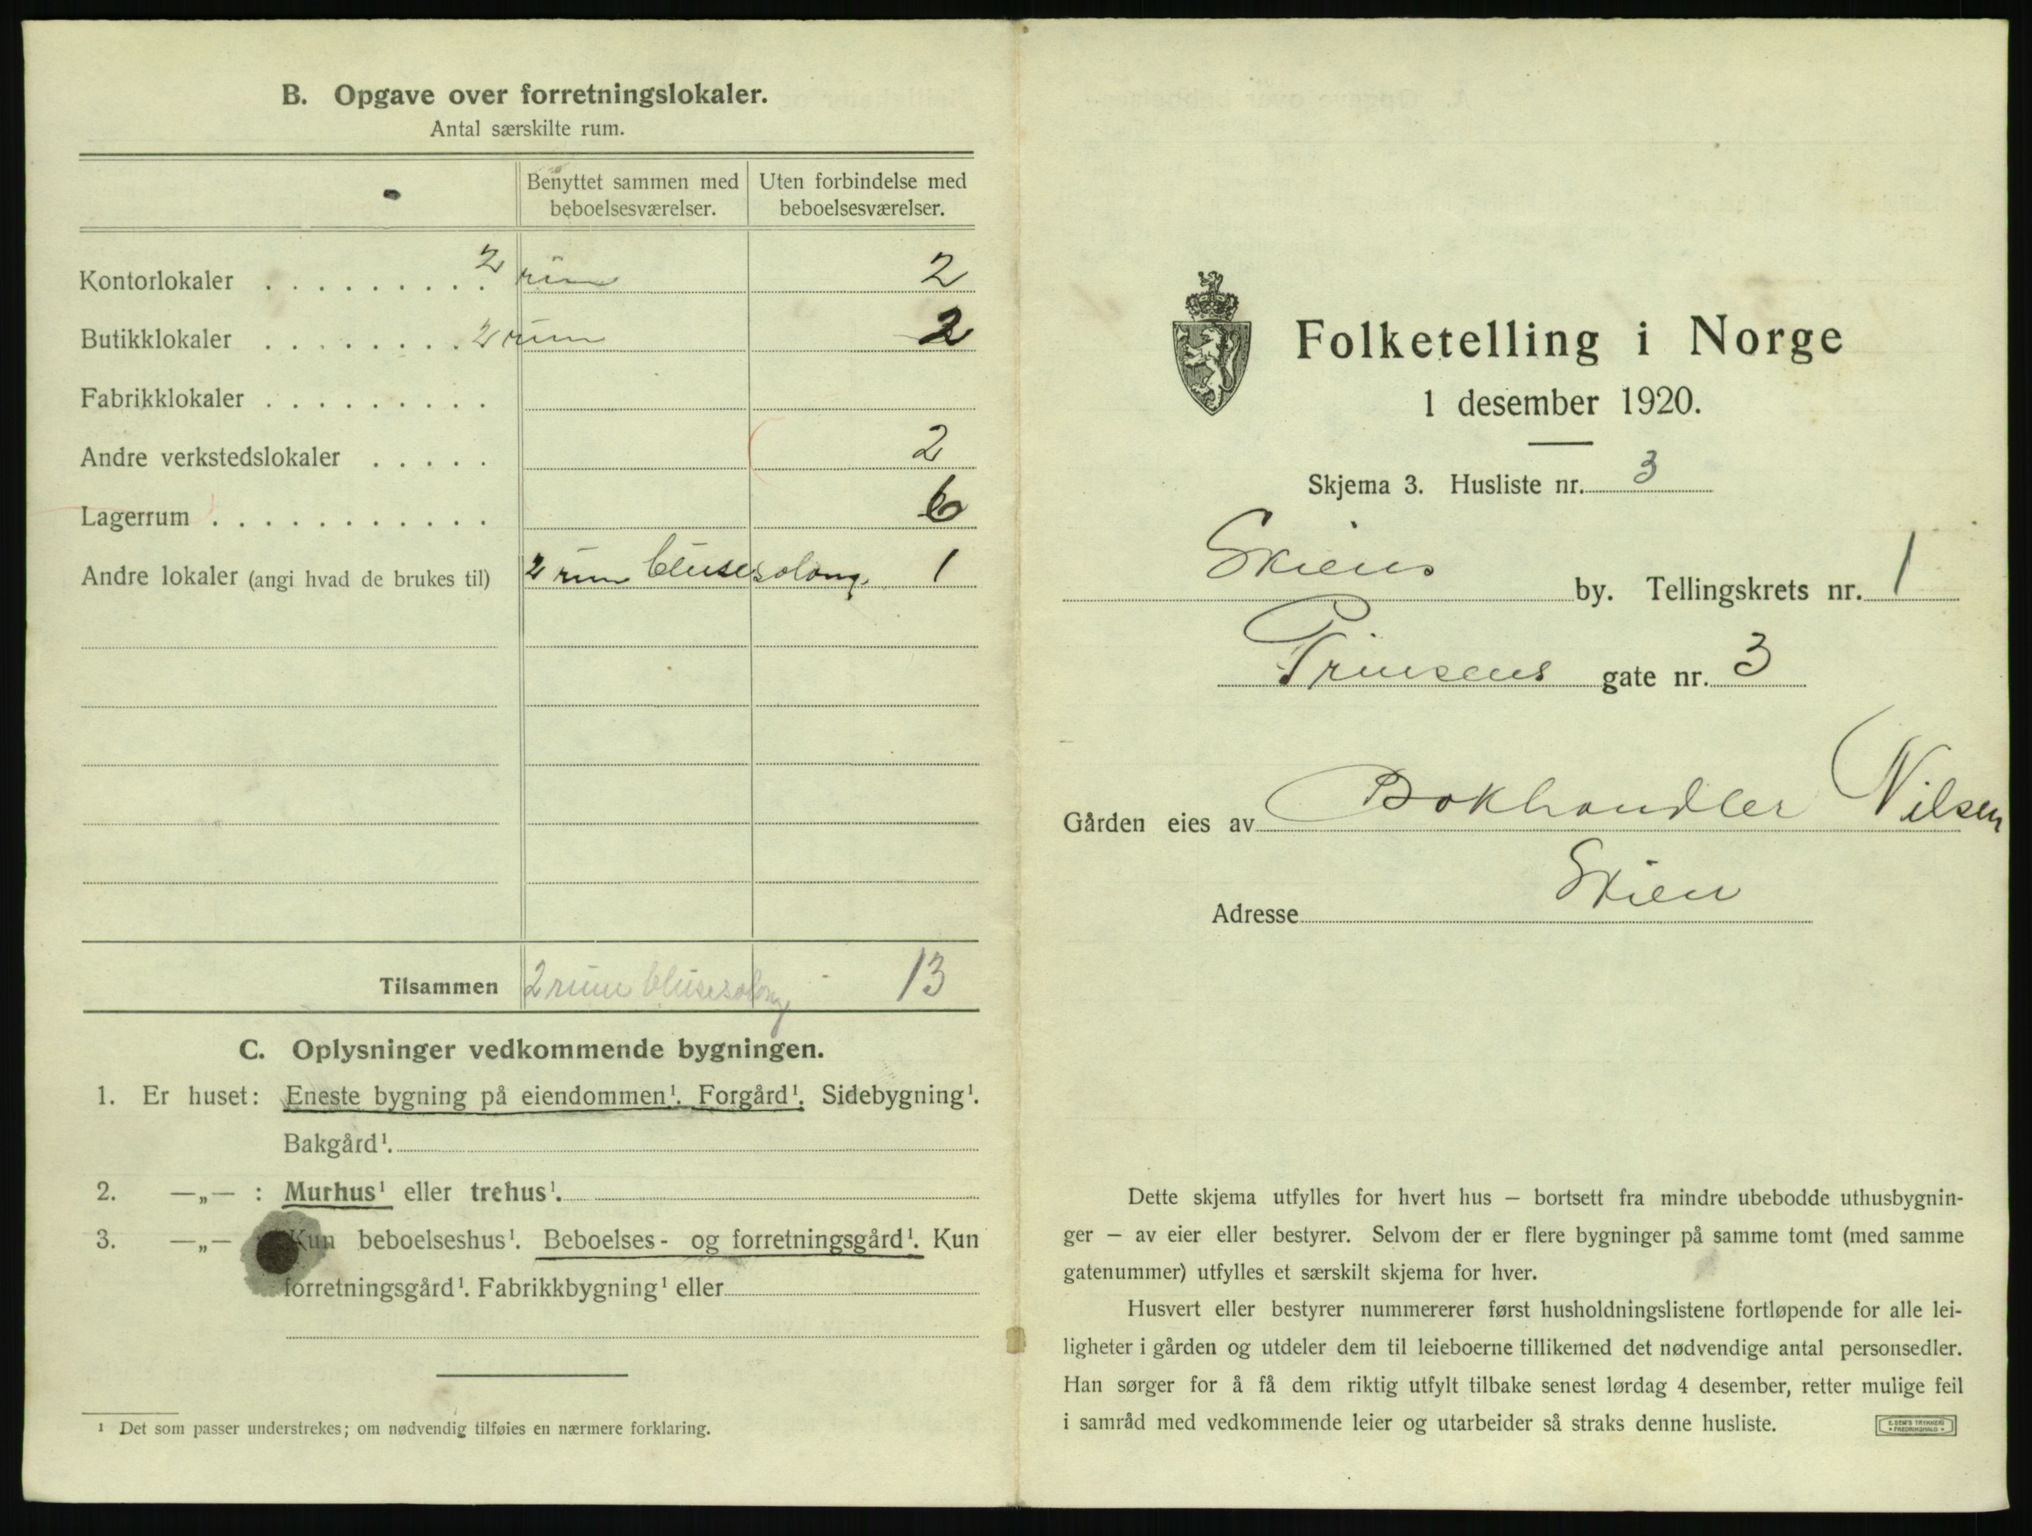 B. Opgave over forretningslokaler.
Antal særskilte rum.
Benyttet sammen med beboelsesværelser.
Uten forbindelse med beboelsesværelser.
Kontorlokaler . . . . . . . . . 2 rum 2
Butikklokaler . . . . . . . . 2 rum 2
Fabrikklokaler . . . . . . . . .
Andre verkstedslokaler . . . . . 2
Lagerrum . . . . . . . . . . . 6
Andre lokaler (angi hvad de brukes til) 2 rum blusesalong 1
Tilsammen 2 rum blusesalong 13
C. Oplysninger vedkommende bygningen.
1. Er huset: Eneste bygning på eiendommen¹. Forgård¹. Sidebygning¹.
Bakgård¹.
2. —„— : Murhus¹ eller trehus¹.
3. —„— Kun beboelseshus¹. Beboelses- og forretningsgård¹. Kun
forretningsgård¹. Fabrikkbygning¹ eller
¹ Det som passer understrekes; om nødvendig tilføies en nærmere forklaring.
Folketelling i Norge
1 desember 1920.
Skjema 3. Husliste nr. 3
Skiens by. Tellingskrets nr. 1
Prinsens gate nr. 3
Gården eies av Bokhandler Nilsen
Adresse Skien
Dette skjema utfylles for hvert hus — bortsett fra mindre ubebodde uthusbygnin-
ger — av eier eller bestyrer. Selvom der er flere bygninger på samme tomt (med samme
gatenummer) utfylles et særskilt skjema for hver.
Husvert eller bestyrer nummererer først husholdningslistene fortløpende for alle lei-
ligheter i gården og utdeler dem til leieboerne tillikemed det nødvendige antal personsedler.
Han sørger for å få dem riktig utfylt tilbake senest lørdag 4 desember, retter mulige feil
i samråd med vedkommende leier og utarbeider så straks denne husliste.
E. SEM'S TRYKKERI
FREDRIKSHALD